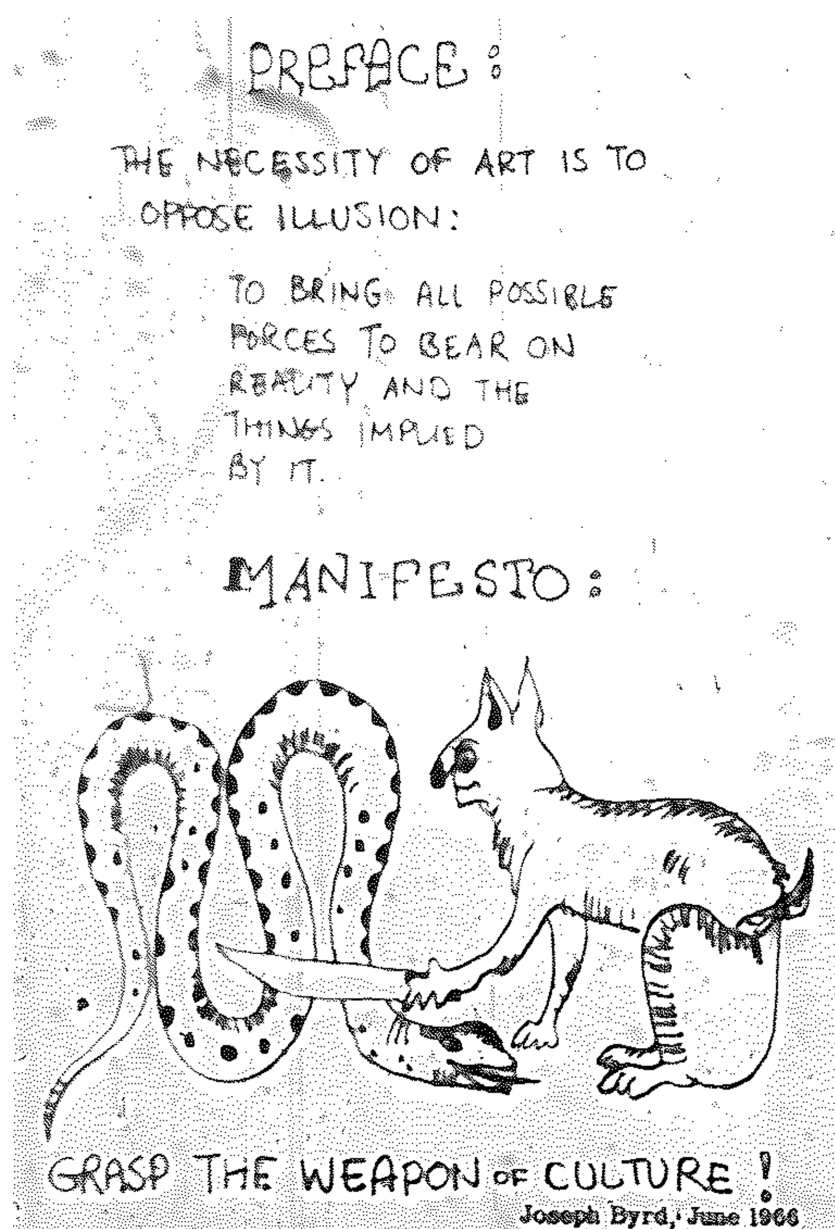 PREFACE:
THE NECESSITY OF ART IS TO
OPPOSE ILLUSION:
TO BRING ALL POSSIBLE
FORCES TO BEAR ON
REALITY AND THE
THINGS IMPLIED
BY IT.
MANIFESTO:
GRASP THE WEAPON OF CULTURE!
Joseph Byrd, June 1966